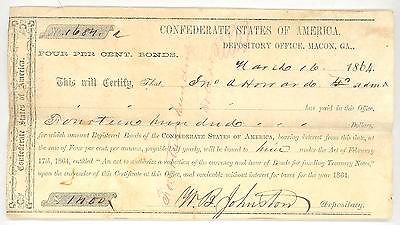 No. 1684 a
CONFEDERATE STATES OF AMERICA.
DEPOSITORY OFFICE, MACON, GA.,
FOUR PER CENT. BONDS.
March 16 1864.
This will Certify, That Jno A Howard admr
has paid in this Office,
Fourteen hundred
Dollars,
for which amount Registered Bonds of the CONFEDERATE STATES OF AMERICA, bearing interest from this date, at
the rate of Four per cent. per annum, payable yearly, will be issued to him under the Act of February
17th, 1864, entitled "An act to authorize a reduction of the currency and issue of Bonds for funding Treasury Notes,"
upon the surrender of this Certificate at this Office, without interest on taxes for the year 1864.
$1400
W. B. Johnston Depositary.
Confederate States of America.